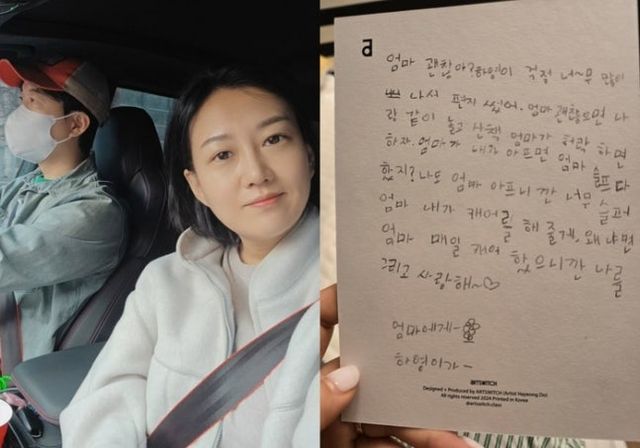 a
엄마 괜찮아?하영이 걱정 너~무 많이
나서 편지 썼어. 엄마괜찮으면 나
랑 같이 놀고 산책 엄마가 허락 하면
하자. 엄마가 내가 아프면 엄마 슬프다
했지? 나도 엄마 아프니깐 너무 슬퍼
엄마 내가 캐어를 해 줄게, 왜냐면
엄마 매일 캐어 했으니깐 나를
그리고 사랑해~♡
엄마에게-
하영이가-
ARTSWITCH
Designed + Produced by ARTSWITCH (Artist Hayoung Do)
All rights reserved 2024 Printed in Korea